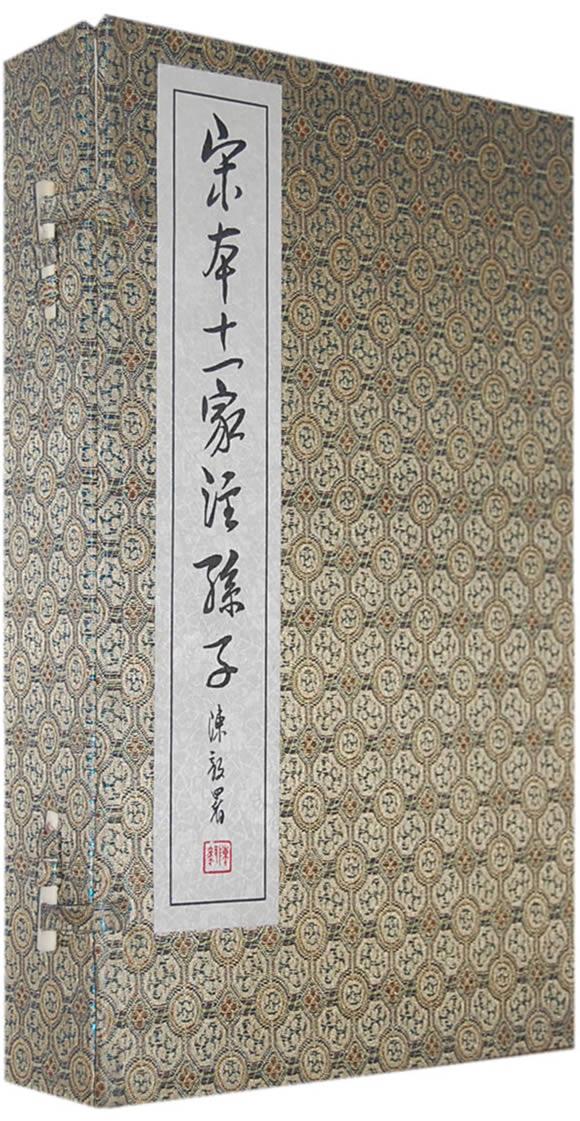 宋本十一家注孫子
陳毅署